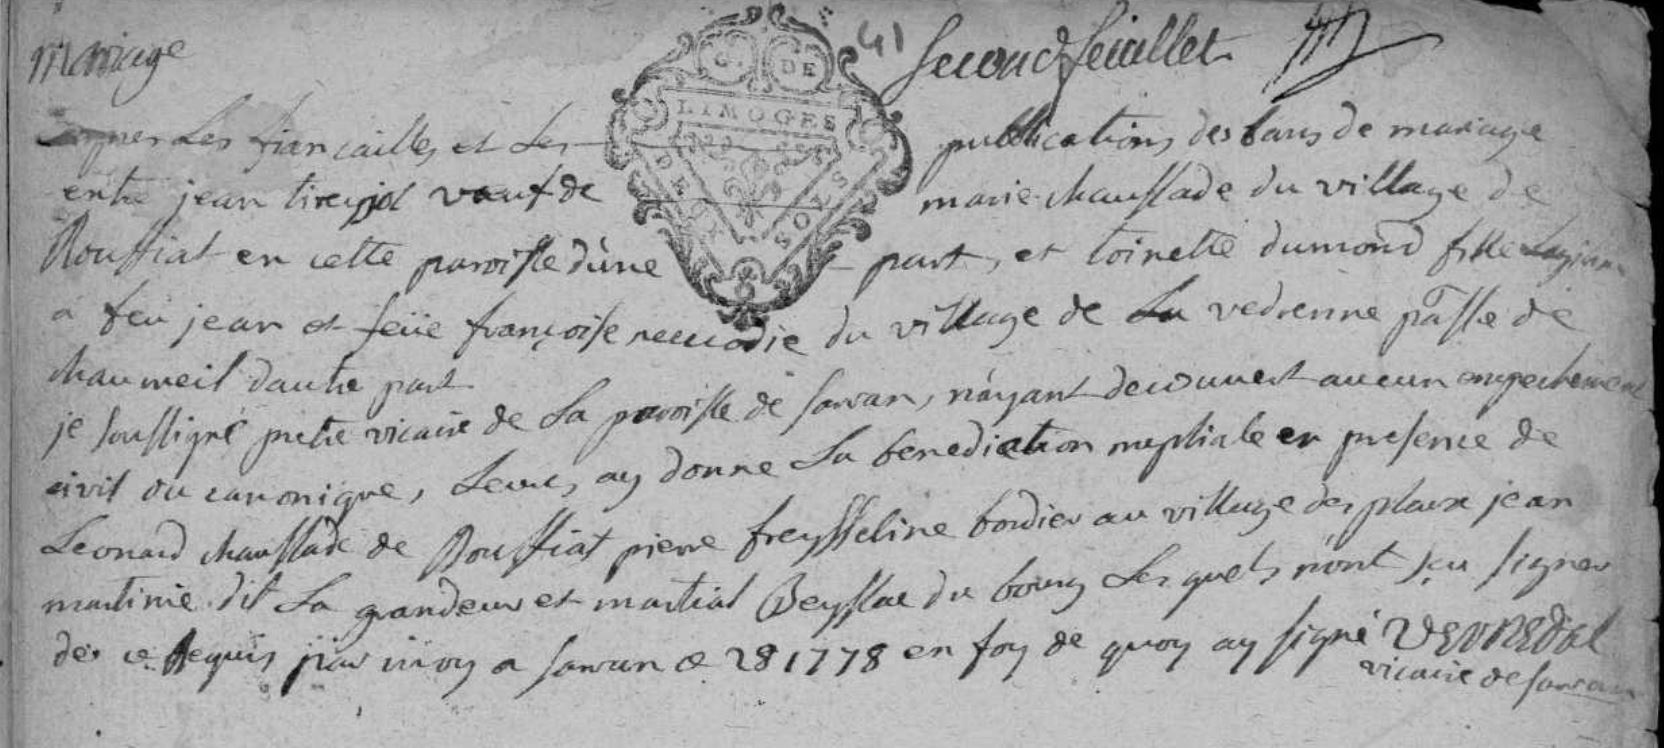 mariage
41
second feuillet
G. DE
LIMOGES
DEUX SOLS
apres Les fiancailles et Les publications des bans de mariage
entre jean tireyjol veuf de marie chaussade du village de
Rouffiat en cette paroisse d'une part, et toinette dumond fille
a feu jean et feüe françoise du village de La vedrenne psse de
chaumeil dautre part
je soussigné pretre vicaire de La paroisse de sarran, n'ayant decouvert aucun empechement
civil ou canonique, Leur, ay donne La benediction nuptiale en presence de
Leonard chaussade de Rouffiat pierre freysseline bordier au village des plaux jean
martinie dit La grandeur et martial Beyssac du bourg Lesquels n'ont sçu signer
de ce Requis par moy a sarran ce 28 1778 en foy de quoy ay signé Vernedal
vicaire de sarran